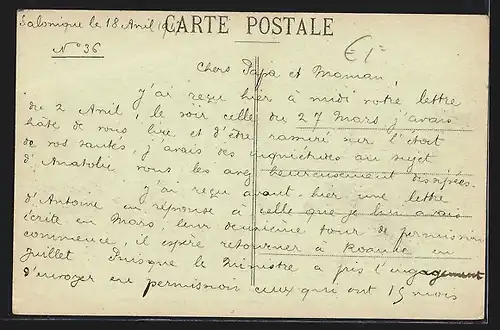 Salonique le 18 Avril 191
CARTE POSTALE
N° 36
€1-
Chers Papa et Maman,
J'ai reçu hier à midi votre lettre
du 2 Avril, le soir celle du 27 Mars, j'avais
hâte de vous lire et d'être rassuré sur l'état
de vos santés, j'avais des inquiétudes au sujet
d'Anatole vous les avez heureusement dissipées.
J'ai reçu avant-hier une lettre
d'Antoine en réponse à celle que je lui avais
écrite en Mars, leur deuxième tour de permission
commence, il espère retourner à Roanne en
Juillet Puisque le Ministre a pris l'engagement
d'envoyer en permission ceux qui ont 15 mois